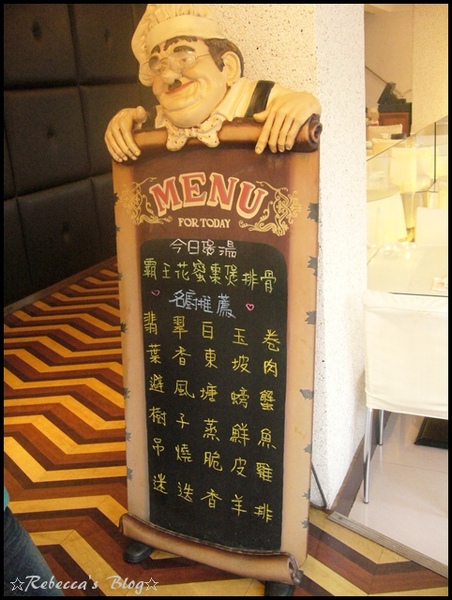 MENU
FOR TODAY
今日煲湯
霸王花蜜棗煲排骨
名廚推薦
翡翠白玉卷
葉香東坡肉
避風塘螃蟹
樹子蒸鮮魚
吊燒脆皮雞
迷迭香羊排
☆Rebecca's Blog☆